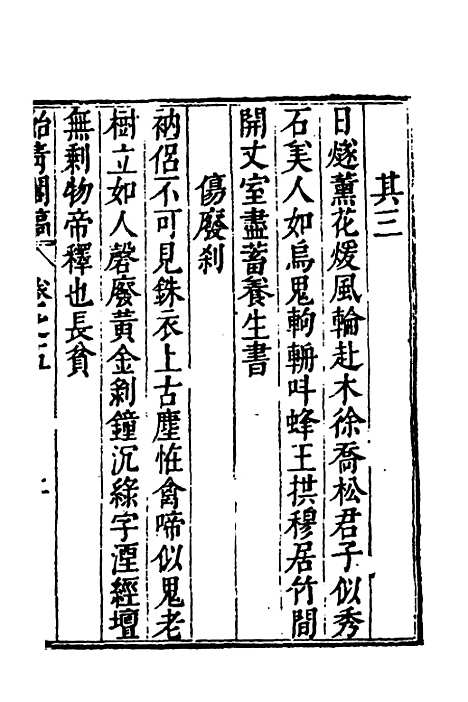 其三
日燧薰花煖風輪赴木徐喬松君子似秀
石美人如烏鬼軥輈呌蜂王拱穆居竹間
開丈室盡蓄養生書
傷廢刹
衲侶不可見銖衣上古塵恠禽啼似鬼老
樹立如人磬廢黃金剝鐘沉綠字湮經壇
無剰物帝釋也長貧
卷之五
二